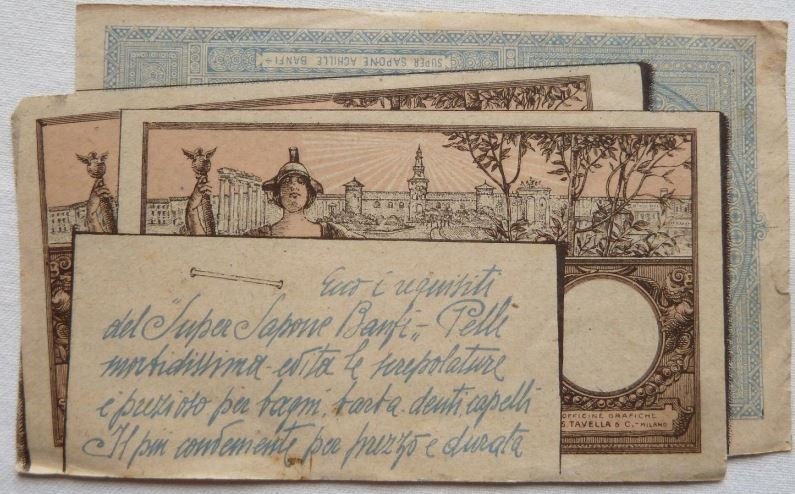 SUPER SAPONE ACHILLE BANFI
Ecco i requisiti
del "Super Sapone Banfi" - Pelle
morbidissima - evita le screpolature
è prezioso per bagni. barba. denti. capelli
Il più conveniente per prezzo e durata
OFFICINE GRAFICHE
S. TAVELLA & C. - MILANO